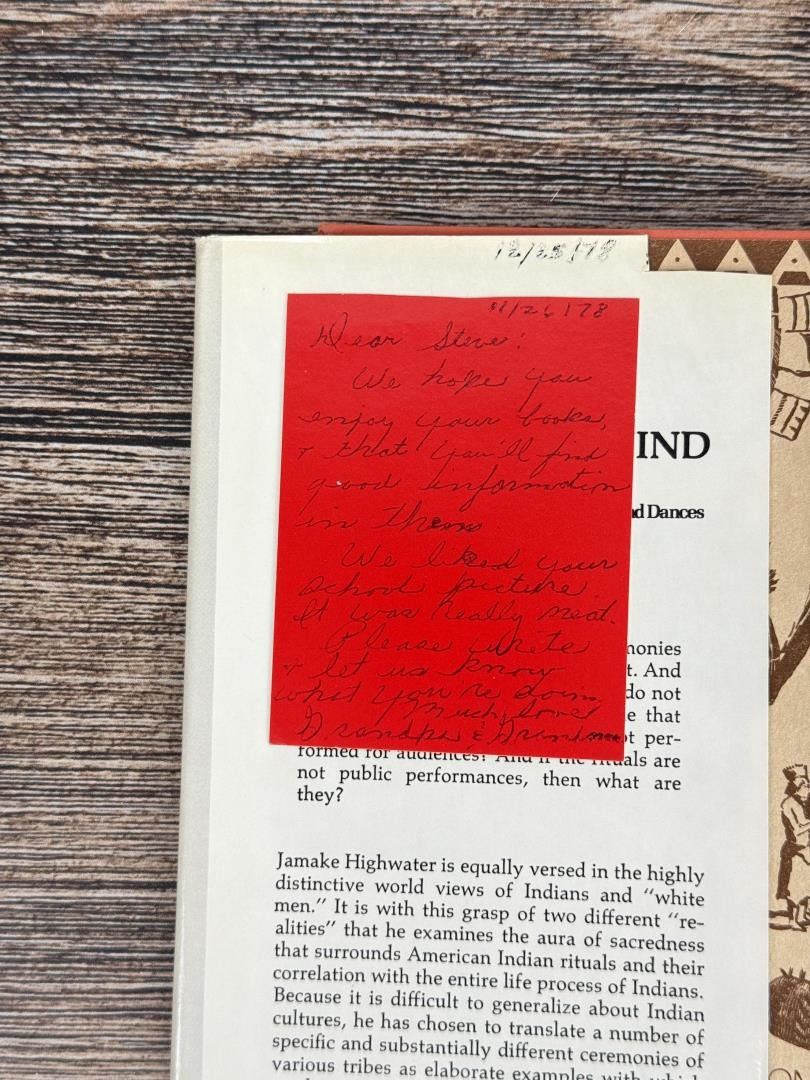 12/25/78
11/26/78
Dear Steve:
We hope you
enjoy your books,
+ that you'll find
good information
in them
We liked your
school picture.
It was really neat.
Please write
+ let us know
what you're doing
Much love
Grandpa & Grandma
IND
nd Dances
monies
t. And
do not
e that
t per-
formed for audiences? And if the rituals are
not public performances, then what are
they?
Jamake Highwater is equally versed in the highly
distinctive world views of Indians and "white
men." It is with this grasp of two different "re-
alities" that he examines the aura of sacredness
that surrounds American Indian rituals and their
correlation with the entire life process of Indians.
Because it is difficult to generalize about Indian
cultures, he has chosen to translate a number of
specific and substantially different ceremonies of
various tribes as elaborate examples with which